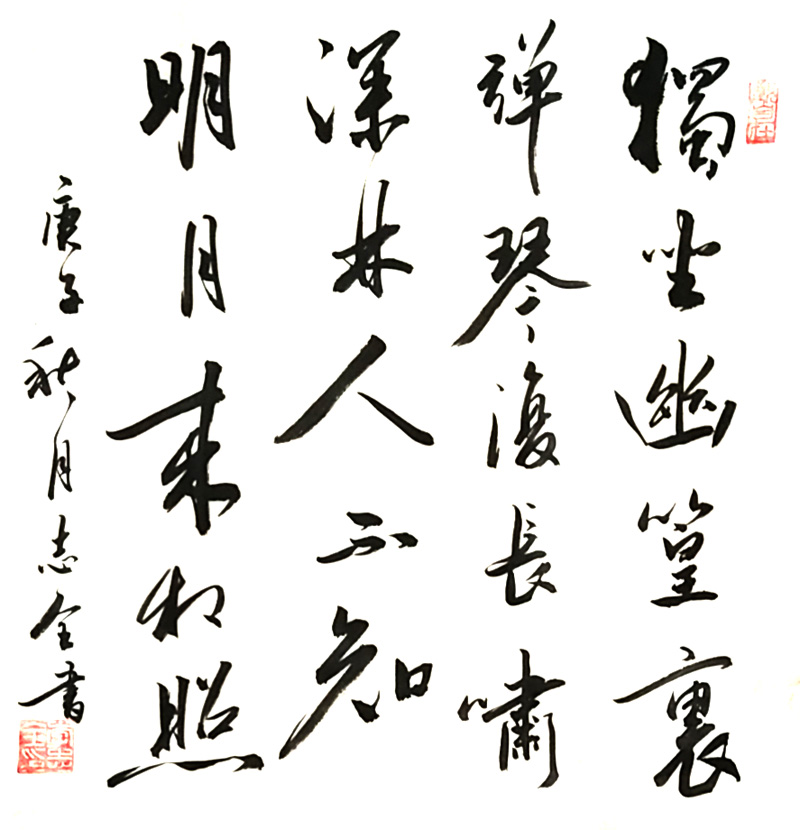 獨坐幽篁裏
弹琴復長嘯
深林人不知
明月来相照
庚子秋月志全書